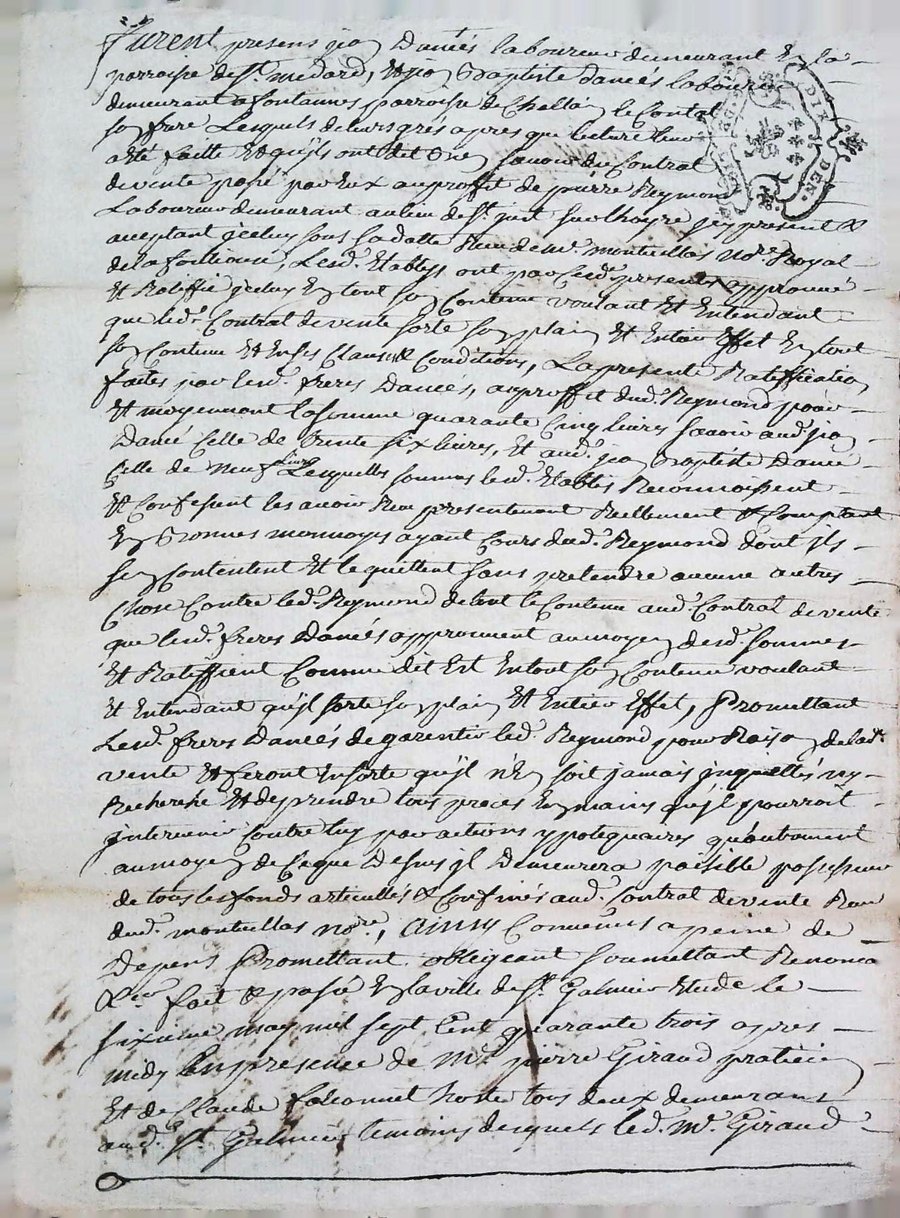 furent presens jea Dancés laboureur demeurant En la
parroisse de St. medard, Et jea Baptiste dancés laboureur
demeurant a fontannes parroisse de Challa le Contal
so frere Lesquels de leurs grés apres que lecture leur
a eté faitte Et qu'jls ont dit Bie savoir du Contrat
de vente passé par Eux au proffit de pierre Reymond
Laboureur demeurant au lieu de St. just sur Choyre jcy present &
acceptant jceluy sous sa datte Receu de Me. monteillas No.re Royal
de la fouliouse, Lesd. Etablys ont par Cesd. presentes approuvé
Et Ratiffié jceluy En tout so Contenu voulant Et Entendant
que led. Contrat de vente sorte so plai Et Entier Effet En tout
so Contenu Et En ses Clauses & Conditions, La presente Ratiffication
faites par lesd. freres Dancés, au proffit dud. Reymond pour
Et moyennant la somme quarante Cinq livres savoir aud. jea
Dancé Celle de trente six livres, Et aud. jea Baptiste Dancé
Celle de neuf livres Lesquelles sommes lesd. Etablis Reconnoissent
Et Confessent les avoir Receu presentement Reellement & Comptant
En Bonnes monnoyes ayant Cours dud. Reymond dont jls
se Contentent Et le quittent sans pretendre aucune autres
Chose Contre led. Reymond de tout le Contenu aud. Contrat de vente
que lesd. freres Dancés approuvent au moye desd. sommes
Et Ratiffient Comme dit Est En tout so Contenu voulant
Et Entendant qu'jl sorte so plai Et Entier Effet, Promettant
Lesd. freres Dancés de garentir led. Reymond pour Raiso de lad.te
vente Et feront En sorte qu'jl n'En soit jamais jnquiettés ny
Recherché Et de prendre tous proces En mains qu'jl pourroit
jntervenir Contre luy par actions ypotequaires qu'autrement
au moye de Ceque Dessus jl Demeurera paisible possesseur
de tous les fonds articullés & Confinés aud. Contrat de vente Receu
dud. monteillas no.re, ainsy Convenus a peine de
Depens Promettant obligeant soumettant Renoncant
&.cr fait & passé En la ville de St. Galmier Etude le
sixieme may mil sept Cent quarante trois apres
midy En presence de Me. pierre Giraud praticie
Et de Claude falconnet hoste tous deux demeurans
aud. St. Galmier temoins desquels led. Me. Giraud